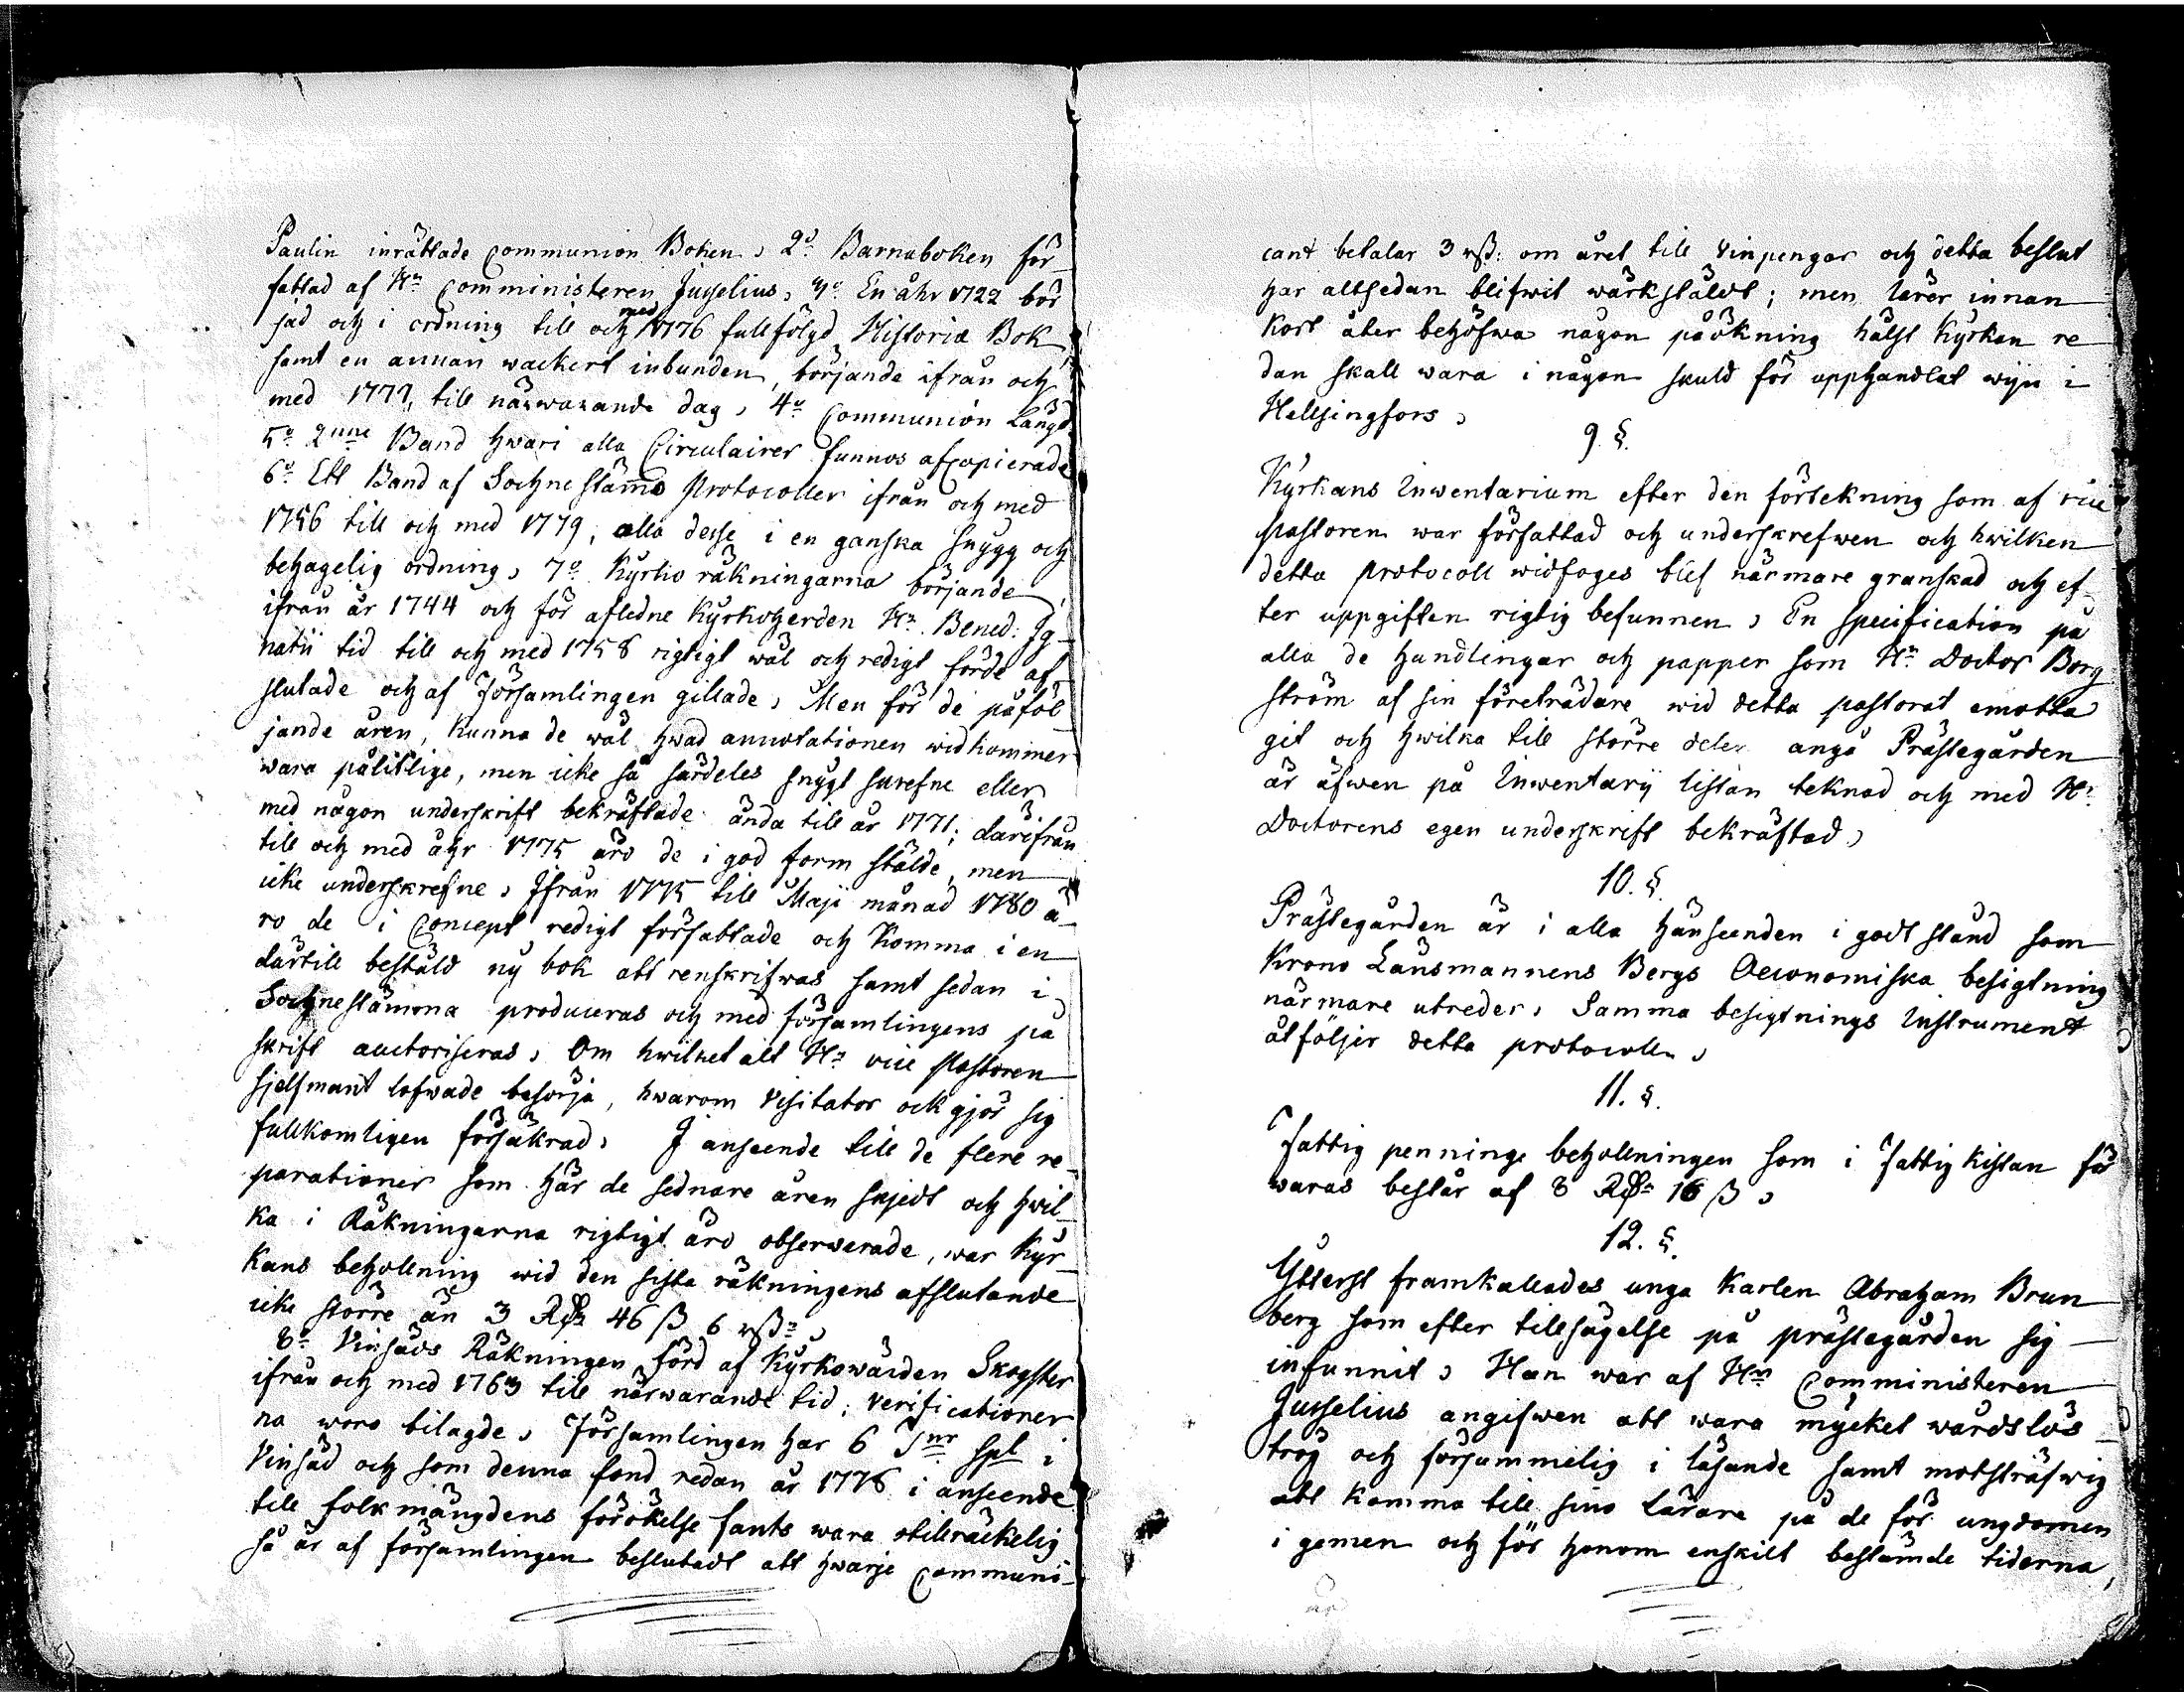 Paulin inrättade Communion Boken, 2:o Barnaboken för-
fattad af Hr Comministeren Jusselius, 3:o En åhr 1722 bör
jad och i ordning till och med 1776 fullfölgd Historiæ Bok,
samt en annan wackert inbunden, börjande ifrån och
med 1777, till närwarande dag, 4:o Communion Längd.
5:o 2:ne Band hwari alla Circulairer funnos afcopierade
6:o Ett Band af Sochne stämmo Protocoller ifrån och med
1756 till och med 1779, alla desse i en ganska snygg och
behagelig ordning, 7:o Kyrko räkningarna börjande
ifrån år 1744 och för afledne Kyrkoherden Hr Bened: Ig-
natii tid till och med 1758 rigtigt wäl och redigt förde af-
slutade och af Församlingen gillade, Men för de påföl-
jande åren, kunna de wäl hwad annotationen widkommer
wara pålitlige, men icke så särdeles snygt skrefne eller
med någon underskrift bekräftade ända till år 1771; därifrån
till och med åhr 1775 äro de i god form stälde, men
icke underskrefne, Ifrån 1775 till Maji månad 1780 ä-
ro de i Concept redigt författade och komma i en
därtill bestäld ny bok att renskrifwas samt sedan i
Sochnestämma produceras och med församlingens på
skrift auctoriseras, Om hwilket alt Hr vice Pastoren
sjelfmant lofwade besörja, hwarom Visitator ock gjör sig
fullkomligen försäkrad, I anseende till de flere re-
parationer som här de sednare åren skjedt och hwil-
ka i Räkningarna rigtigt äro observerade, war Kyr-
kans behollning wid den sista räkningens afslutande
icke större än 3 Rdr 46 ß 6 rß
8:o Vinsäds Räkningen förd af Kyrkowärden Skogster
ifrån och med 1763 till närwarande tid; Verificationer
na woro bilagde, Församlingen har 6 Tnr Spl i
Vinsäd och som denna fond redan år 1776 i anseende
till folkmängdens förökelse fants wara otillräckelig
så är af församlingen beslutadt att hwarje Communi-
cant betalar 3 rß: om året till Vinpengar och detta beslut
har altsedan blifwit wärkstäldt; men lärer innan
kort åter behöfwa någon påökning hälst Kyrkan re
dan skall wara i någon skuld för upphandlat wijn i
Hellsingfors,
9. §.
Kyrkans Inwentarium efter den förtekning som af vice
Pastoren war författad och underskrefwen och hwilken
detta protocoll widfoges blef närmare granskad och ef-
ter uppgiften rigtig befunnen, En specification på
alla de handlingar och papper som Hr Doctor Borg
ström af sin företrädare wid detta pastorat emotta
git och hwilka till större delen angå Prästegården
är äfwen på Inwentarij listan teknad och med Hr
Doctorens egen underskrift bekräftad,
10. §.
Prästegården är i alla hänseenden i godt stånd som
Krono Länsmannens Bergs Oeconomiska besigtning
närmare utreder, Samma besigtnings Instrument
åtföljer detta protocoll,
11. §.
Fattig penninge behollningen som i Fattig kistan för
waras består af 8 Rdr 16 ß,
12. §.
Ytterst framkallades unga Karlen Abraham Brun
berg som efter tillsägelse på prästegården sig
infunnit, Han war af Hr Comministeren
Jusselius angifwen att wara mycket wårdslös
trög och försummelig i läsande samt motsträfwig
att komma till sina lärare på de för ungdomen
i gemen och för honom enskilt bestämde tiderna,